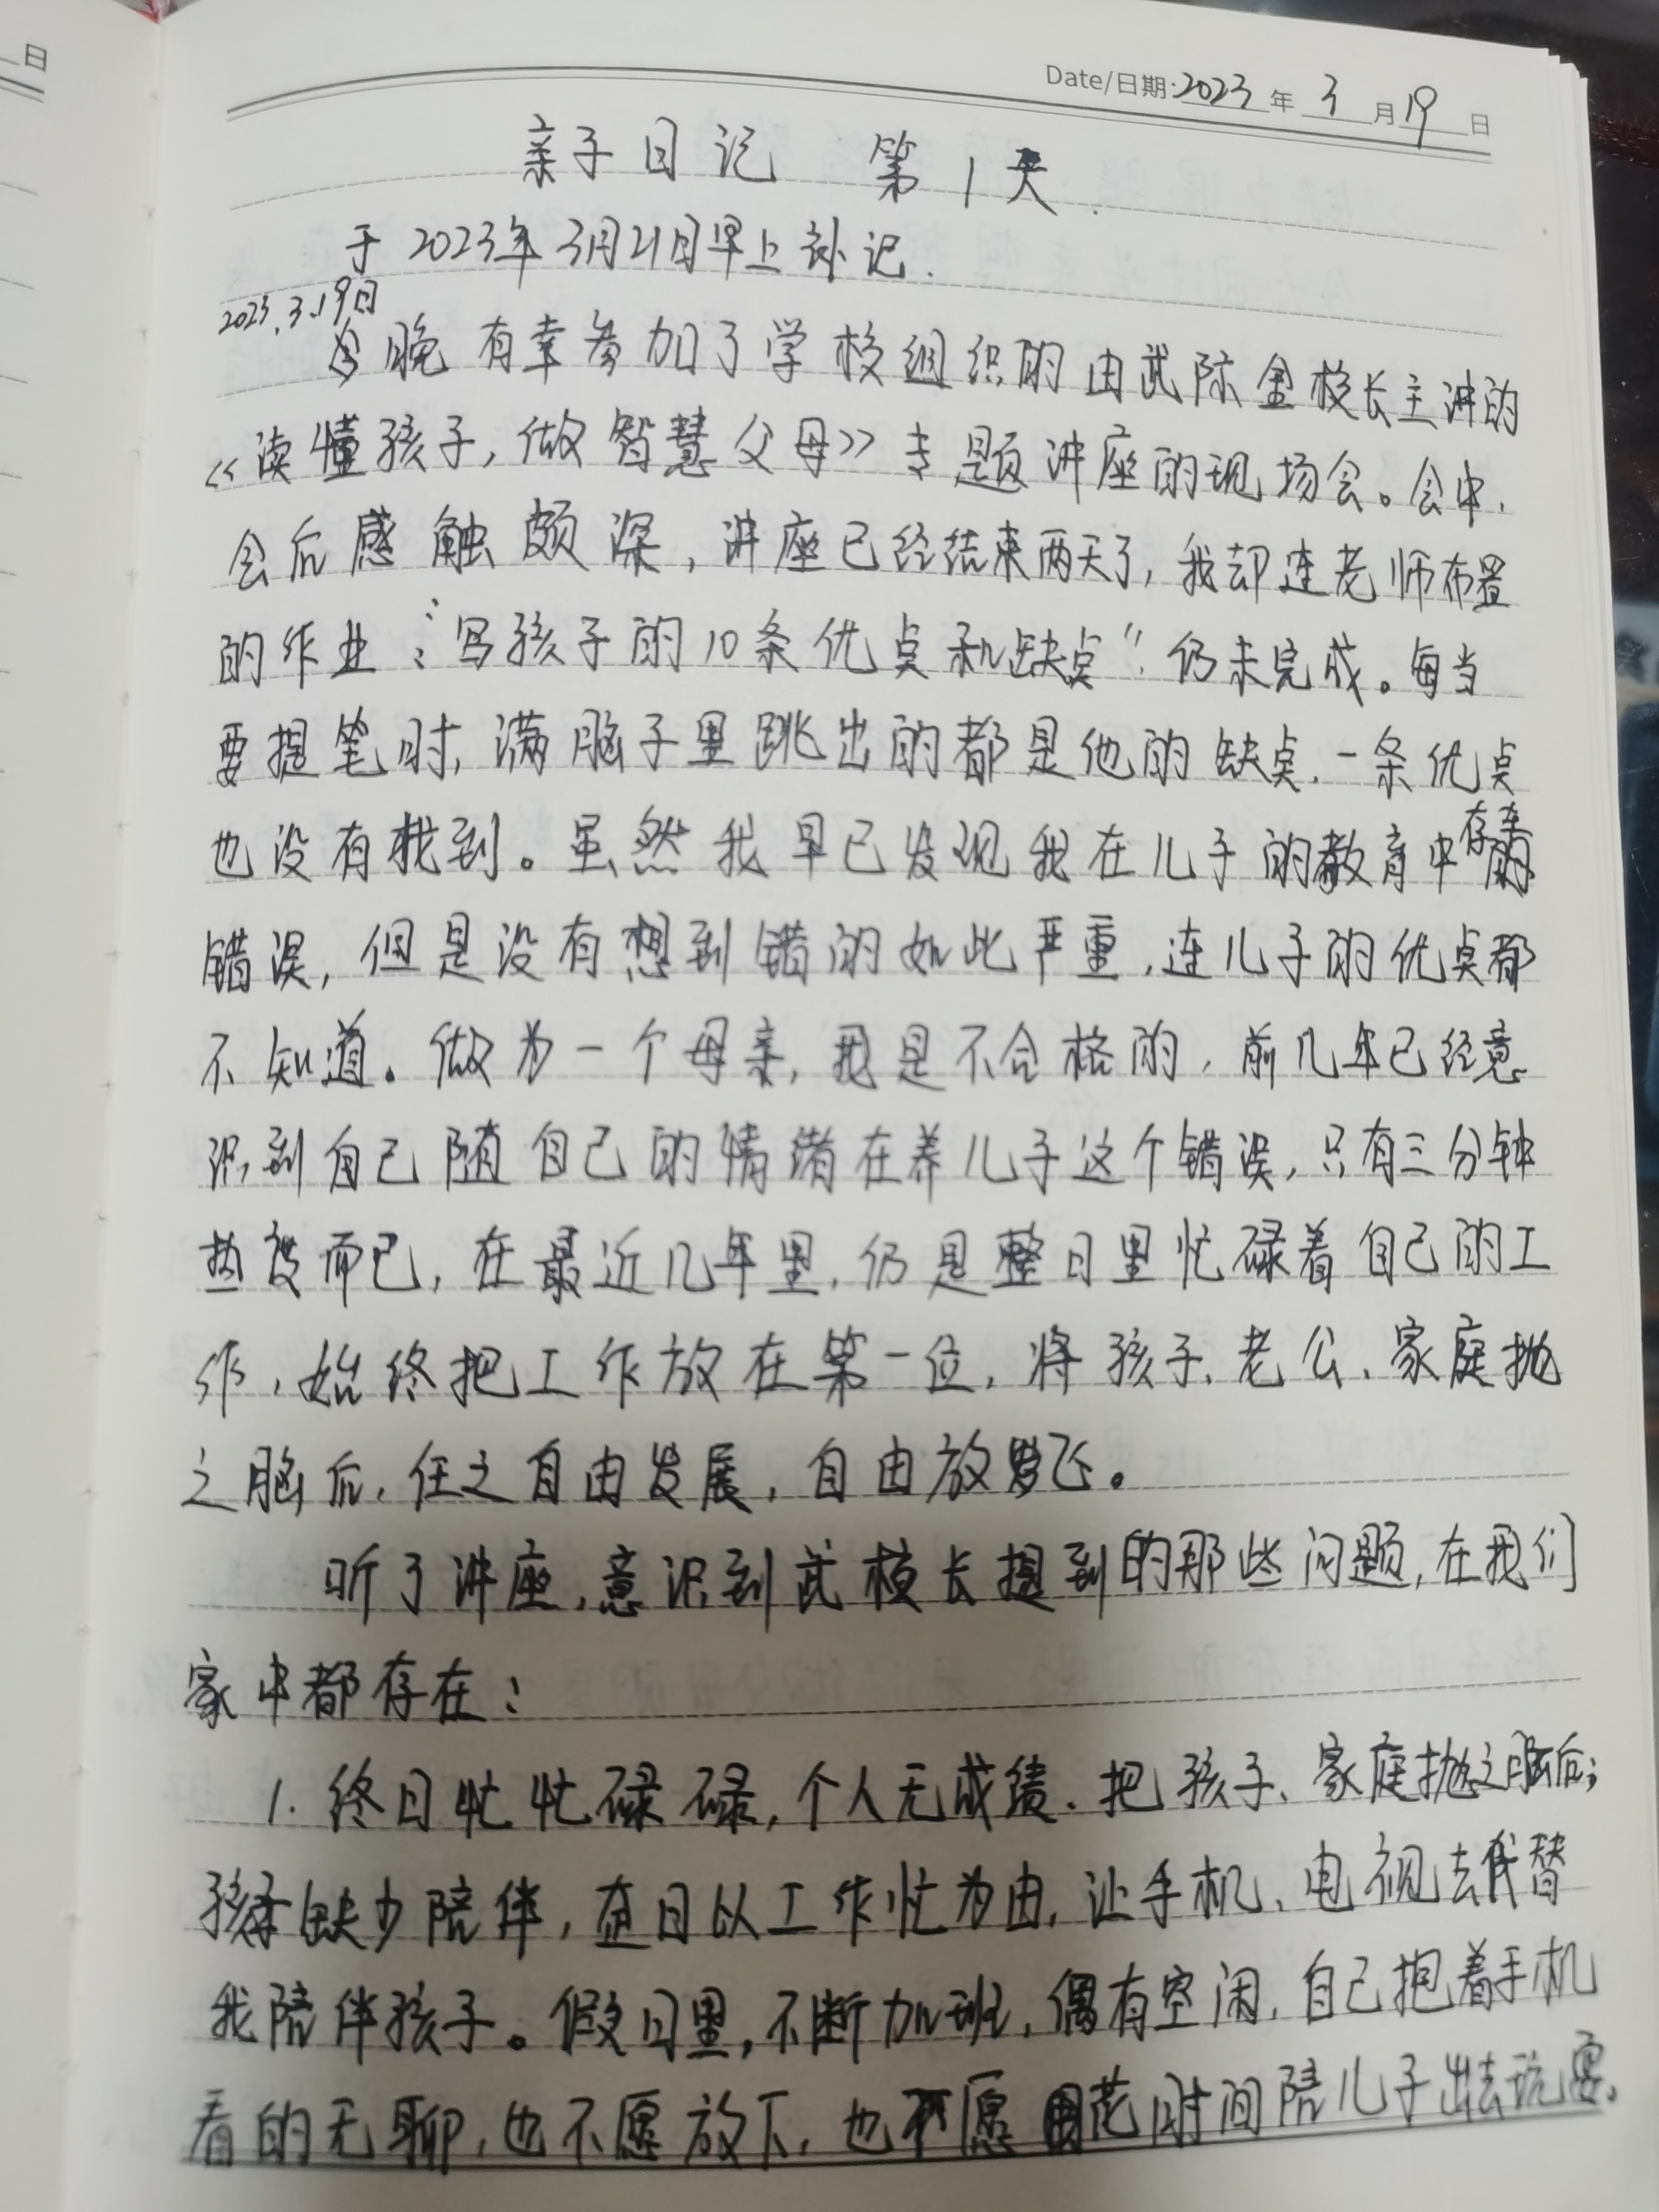 日
Date/日期:2023年3月19日
亲子日记 第1天.
于2023年3月21日早上补记.
2023.3.19日
今晚有幸参加了学校组织的由武际金校长主讲的
《读懂孩子,做智慧父母》专题讲座的现场会。会中,
会后感触颇深,讲座已经结束两天了,我却连老师布置
的作业:“写孩子的10条优点和缺点”仍未完成。每当
要提笔时,满脑子里跳出的都是他的缺点,一条优点
也没有找到。虽然我早已发现我在儿子的教育中存在的
错误,但是没有想到错的如此严重,连儿子的优点都
不知道。做为一个母亲,我是不合格的,前几年已经意
识到自己随自己的情绪在养儿子这个错误,只有三分钟
热度而已,在最近几年里,仍是整日里忙碌着自己的工
作,始终把工作放在第一位,将孩子、老公、家庭抛
之脑后,任之自由发展,自由放飞。
听了讲座,意识到武校长提到的那些问题,在我们
家中都存在:
1.终日忙忙碌碌,个人无成绩、把孩子、家庭抛之脑后;
孩子缺少陪伴,整日以工作忙为由,让手机、电视去代替
我陪伴孩子。假日里,不断加班,偶有空闲,自己抱着手机
看的无聊,也不愿放下,也不愿花时间陪儿子出去玩耍.